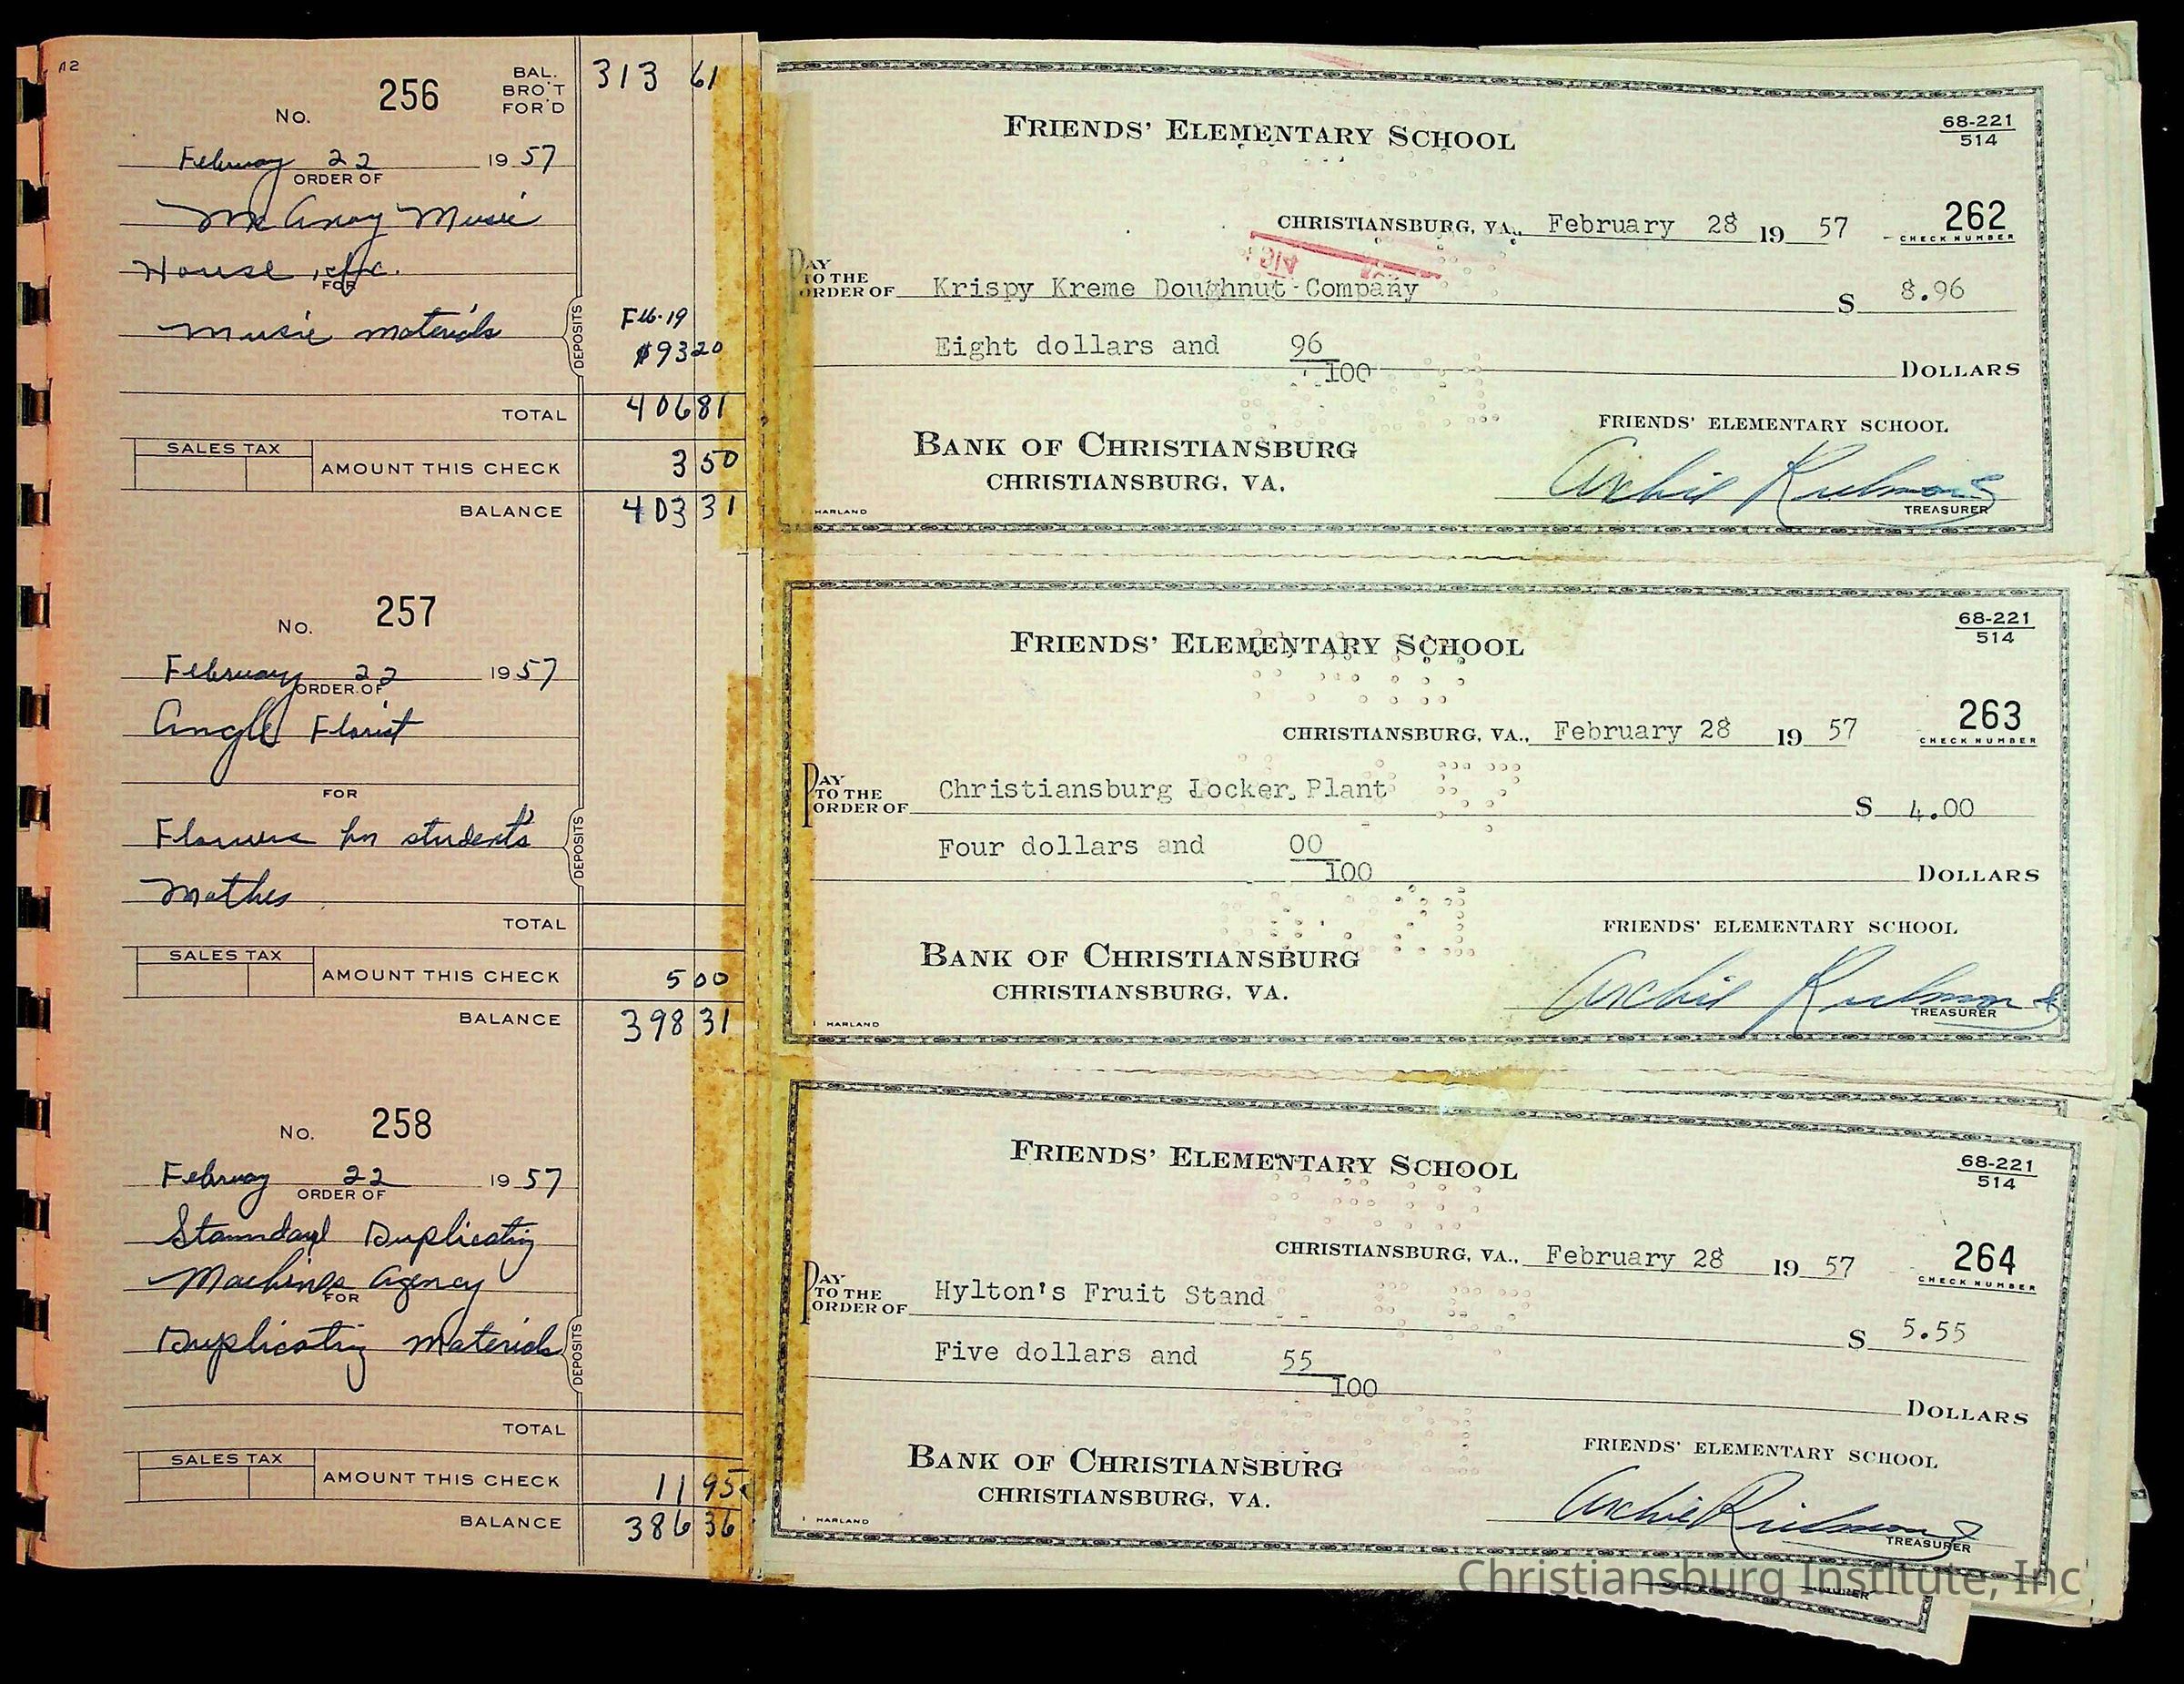 A2
No. 256 BAL. BRO'T FOR'D 313 61
February 22 19 57
ORDER OF
McAnoy Music
House, Inc.
FOR
music materials
DEPOSITS
Feb. 19
$93 20
TOTAL 406 81
SALES TAX
AMOUNT THIS CHECK 3 50
BALANCE 403 31
No. 257
February 22 19 57
ORDER OF
Angle Florist
FOR
Flowers for student's
Mother
DEPOSITS
TOTAL
SALES TAX
AMOUNT THIS CHECK 5 00
BALANCE 398 31
No. 258
February 22 19 57
ORDER OF
Stanndard Duplicating
Machines Agency
FOR
Duplicating materials
DEPOSITS
TOTAL
SALES TAX
AMOUNT THIS CHECK 11 95
BALANCE 386 36
FRIENDS' ELEMENTARY SCHOOL
68-221
514
CHRISTIANSBURG, VA., February 28 19 57
262
CHECK NUMBER
PAY TO THE ORDER OF Krispy Kreme Doughnut Company $ 8.96
Eight dollars and 96/100 DOLLARS
FRIENDS' ELEMENTARY SCHOOL
BANK OF CHRISTIANSBURG
CHRISTIANSBURG, VA.
Archie Richmond
TREASURER
HARLAND
FRIENDS' ELEMENTARY SCHOOL
68-221
514
CHRISTIANSBURG, VA., February 28 19 57
263
CHECK NUMBER
PAY TO THE ORDER OF Christiansburg Locker Plant $ 4.00
Four dollars and 00/100 DOLLARS
FRIENDS' ELEMENTARY SCHOOL
BANK OF CHRISTIANSBURG
CHRISTIANSBURG, VA.
Archie Richmond
TREASURER
HARLAND
FRIENDS' ELEMENTARY SCHOOL
68-221
514
CHRISTIANSBURG, VA., February 28 19 57
264
CHECK NUMBER
PAY TO THE ORDER OF Hylton's Fruit Stand $ 5.55
Five dollars and 55/100 DOLLARS
FRIENDS' ELEMENTARY SCHOOL
BANK OF CHRISTIANSBURG
CHRISTIANSBURG, VA.
Archie Richmond
TREASURER
HARLAND
Christiansburg Institute, Inc